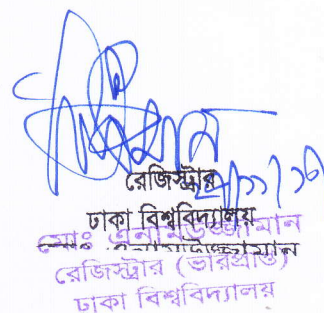 রেজিস্ট্রার
ঢাকা বিশ্ববিদ্যালয়
মোঃ এনামউজ্জামান
রেজিস্ট্রার (ভারপ্রাপ্ত)
ঢাকা বিশ্ববিদ্যালয়